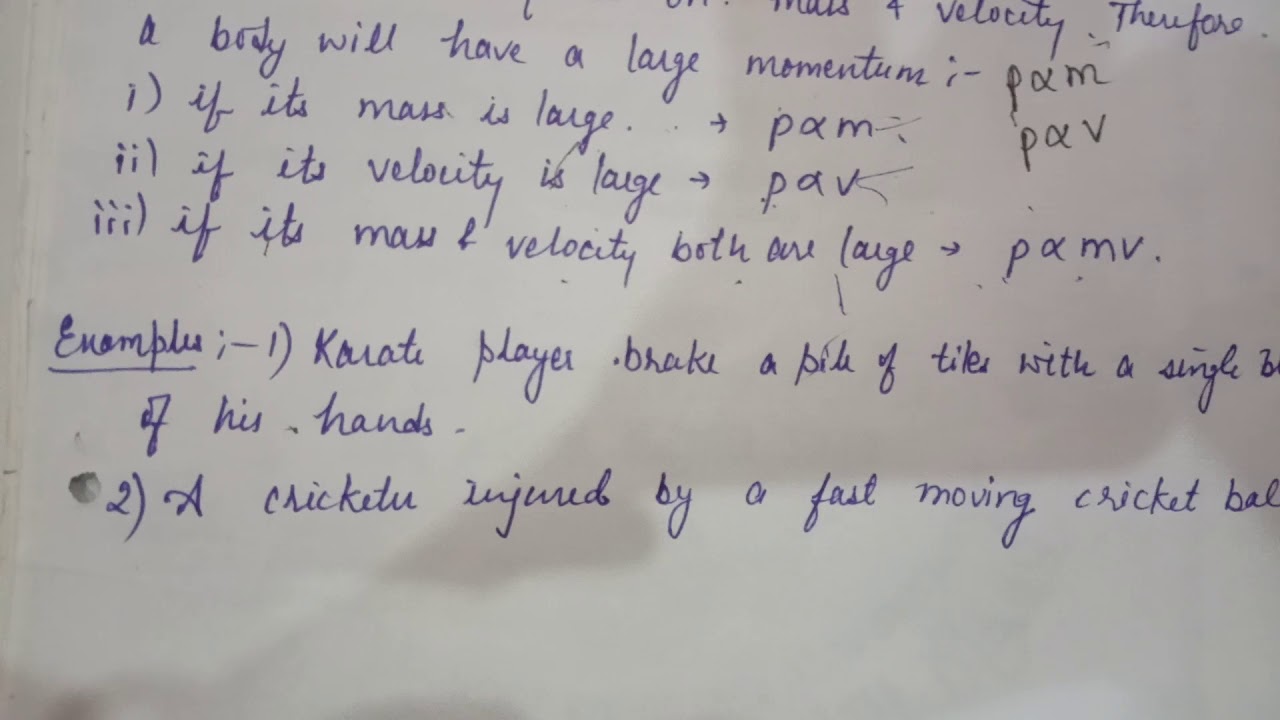 on mass & velocity. Therefore.
a body will have a large momentum :- p∝m
i) if its mass is large. → p∝m
p∝v
ii) if its velocity is large → p∝v
iii) if its mass & velocity both are large → p∝mv.
Examples :- 1) Karate player brake a pile of tiles with a single
of his hands.
2) A cricketer injured by a fast moving cricket bal